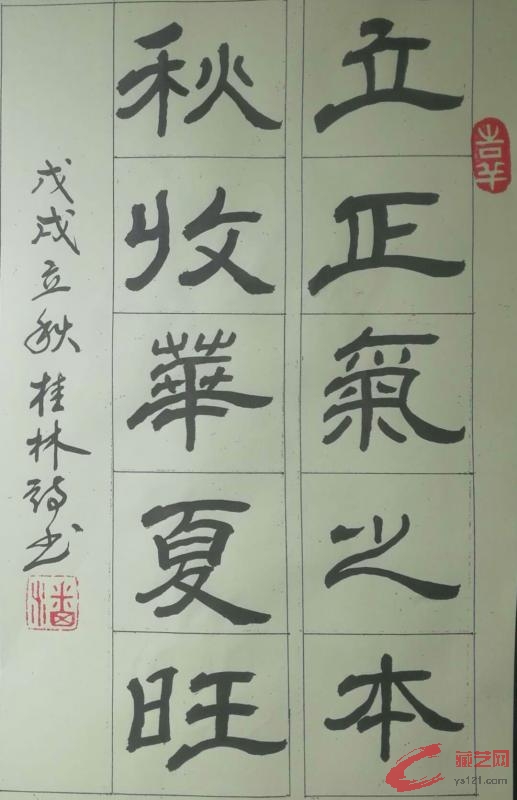 立正氣之本
秋收華夏旺
戊戌立秋桂林詩书
吉羊
潘
藏艺网
ys121.com